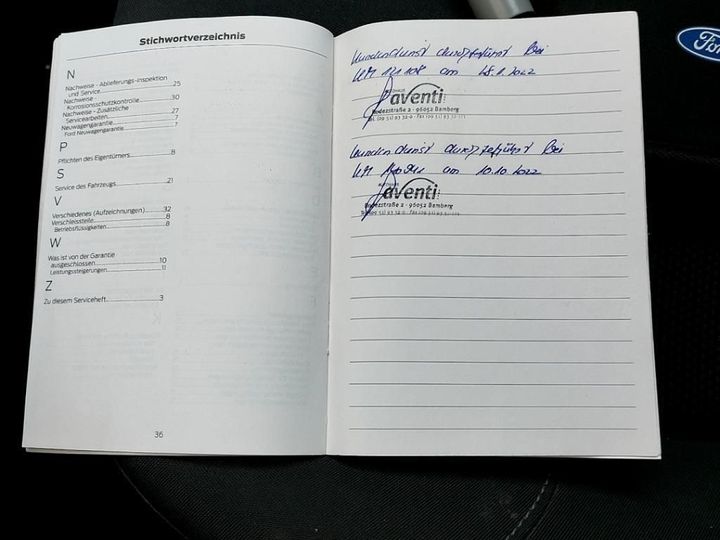 Stichwortverzeichnis
N
Nachweise - Ablieferungs-Inspektion
und Service 25
Nachweise -
Korrosionsschutzkontrolle 30
Nachweise - Zusätzliche
Servicearbeiten 27
Neuwagengarantie 7
Ford Neuwagengarantie 7
P
Pflichten des Eigentümers 8
S
Service des Fahrzeugs 21
V
Verschiedenes (Aufzeichnungen) 32
Verschleissteile 8
Betriebsflüssigkeiten 8
W
Was ist von der Garantie
ausgeschlossen 10
Leistungssteigerungen 11
Z
Zu diesem Serviceheft 3
36
Kundendienst durchgeführt Bei
KM 121 108 am 2022
aventi
Rodezstraße 2 - 96052 Bamberg
Tel. (09 51) 93 32-0 - Fax (09 51) 93 32-111
Kundendienst durchgeführt Bei
KM am 10.10.2022
aventi
Rodezstraße 2 - 96052 Bamberg
Tel. (09 51) 93 32-0 - Fax (09 51) 93 32-111
Ford